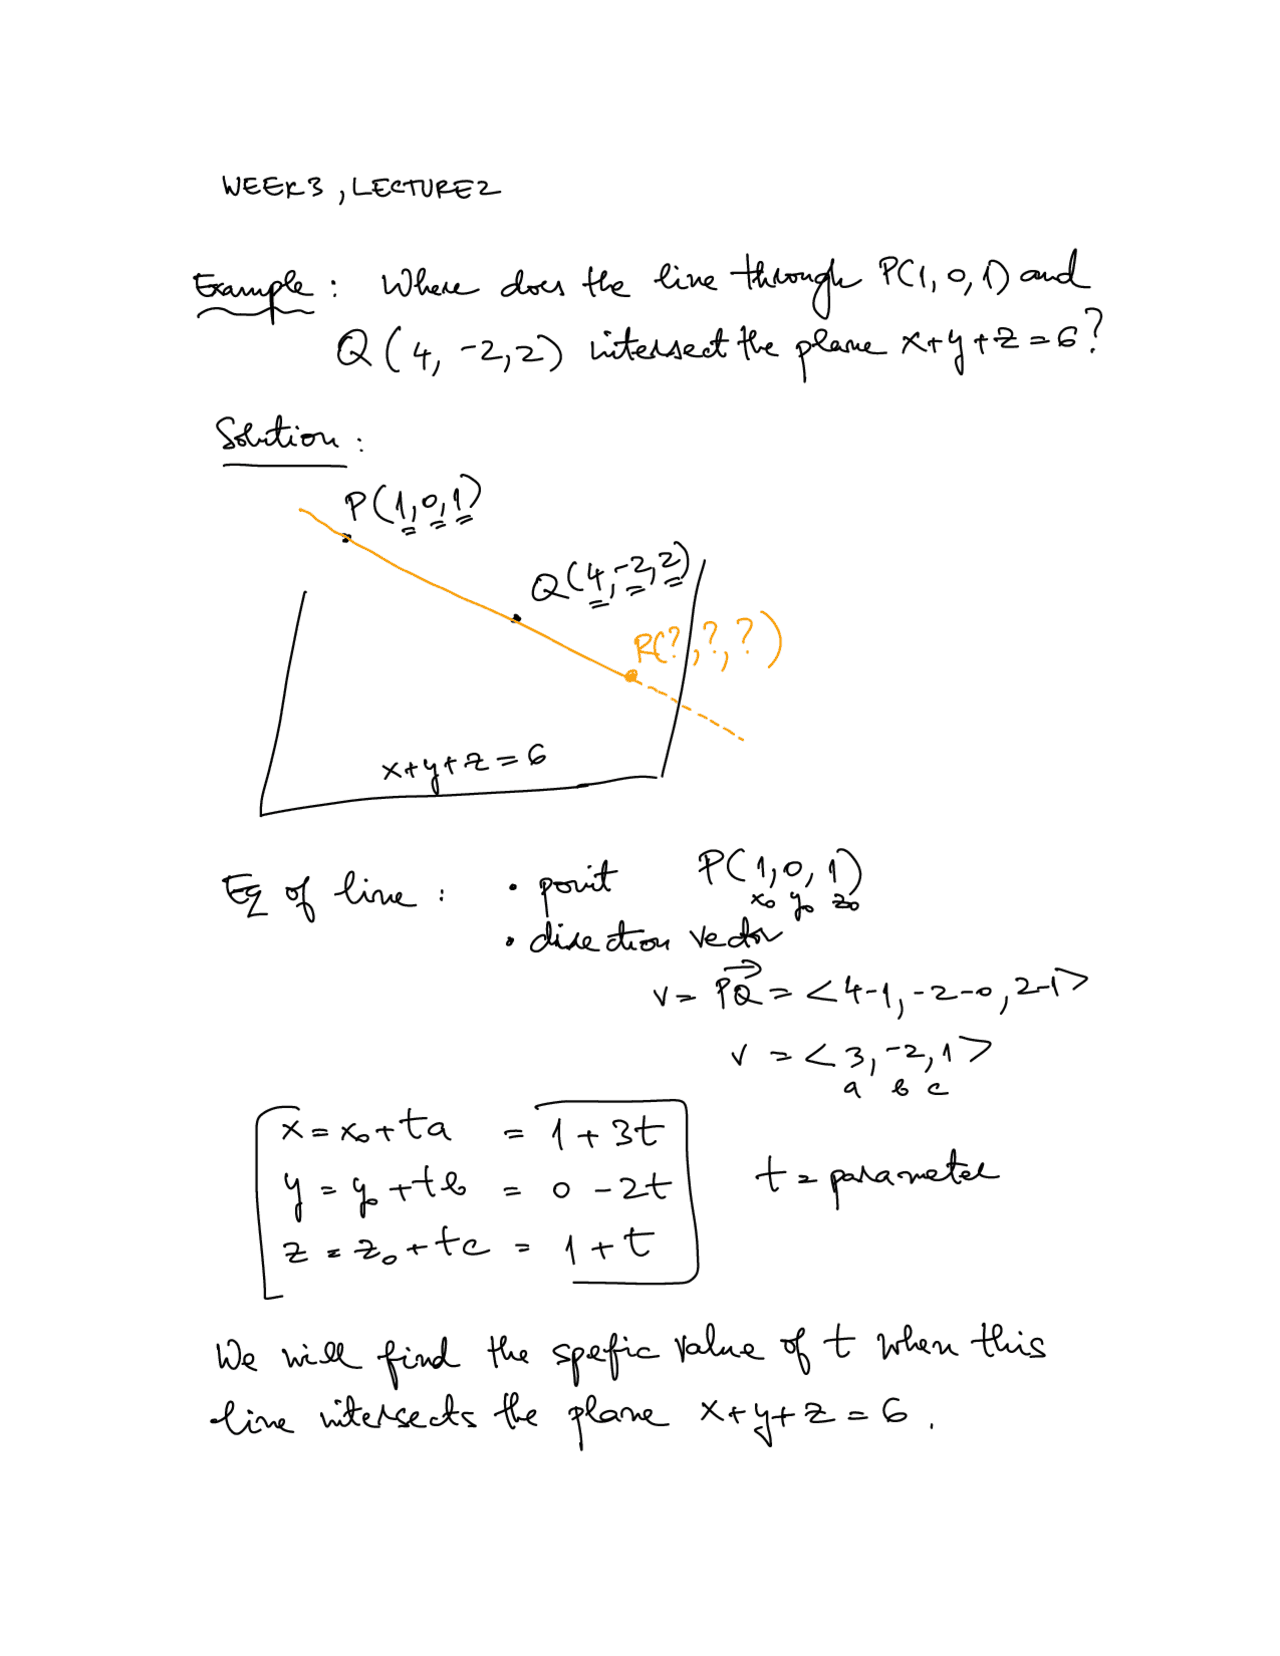 WEEK3, LECTURE2
Example: Where does the line through P(1, 0, 1) and
Q(4, -2, 2) intersect the plane x+y+z=6?
Solution:
P(1, 0, 1)
Q(4, -2, 2)
R(?, ?, ?)
x+y+z=6
Eq of line: • point P(1, 0, 1)
x₀ y₀ z₀
• direction vector
v = PQ⃗ = <4-1, -2-0, 2-1>
v = <3, -2, 1>
a b c
x = x₀ + ta = 1 + 3t
y = y₀ + tb = 0 - 2t
t = parameter
z = z₀ + tc = 1 + t
We will find the spefic value of t when this
line intersects the plane x+y+z=6.